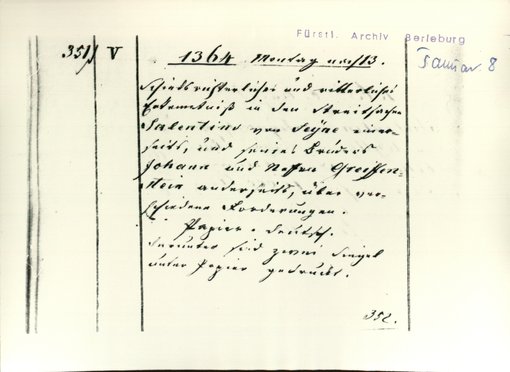 Fürstl. Archiv Berleburg
Januar 8
351) V
1364 Montag nach 13.
Schiedsrichterliches und ritterliches
Erkenntniß in den Streitsachen
Salentins von Seyne einer-
seits, und seines Bruders
Johann und Neffen Greiffen-
stein anderseits, über ver-
schiedene Forderungen.
Papier. deutsch.
darunter sind zwei Siegel
unter Papier gedruckt.
352.